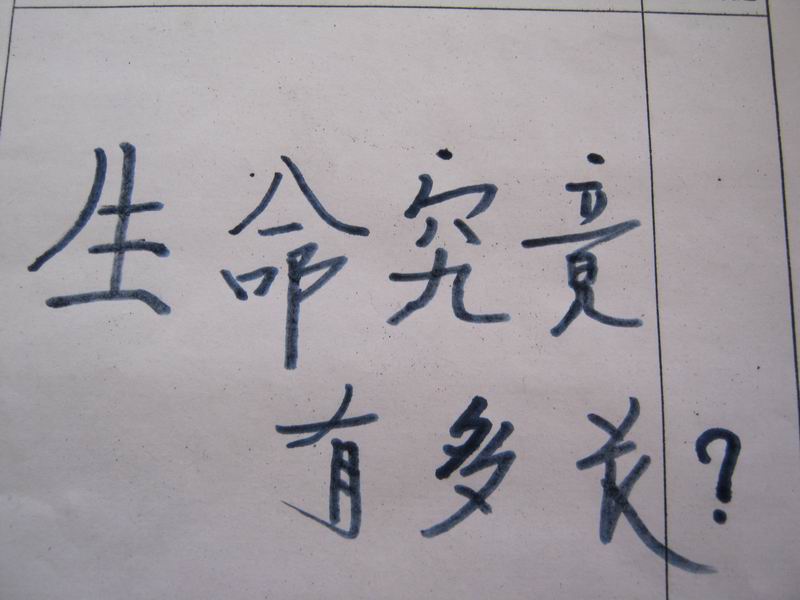 生命究竟
有多长?